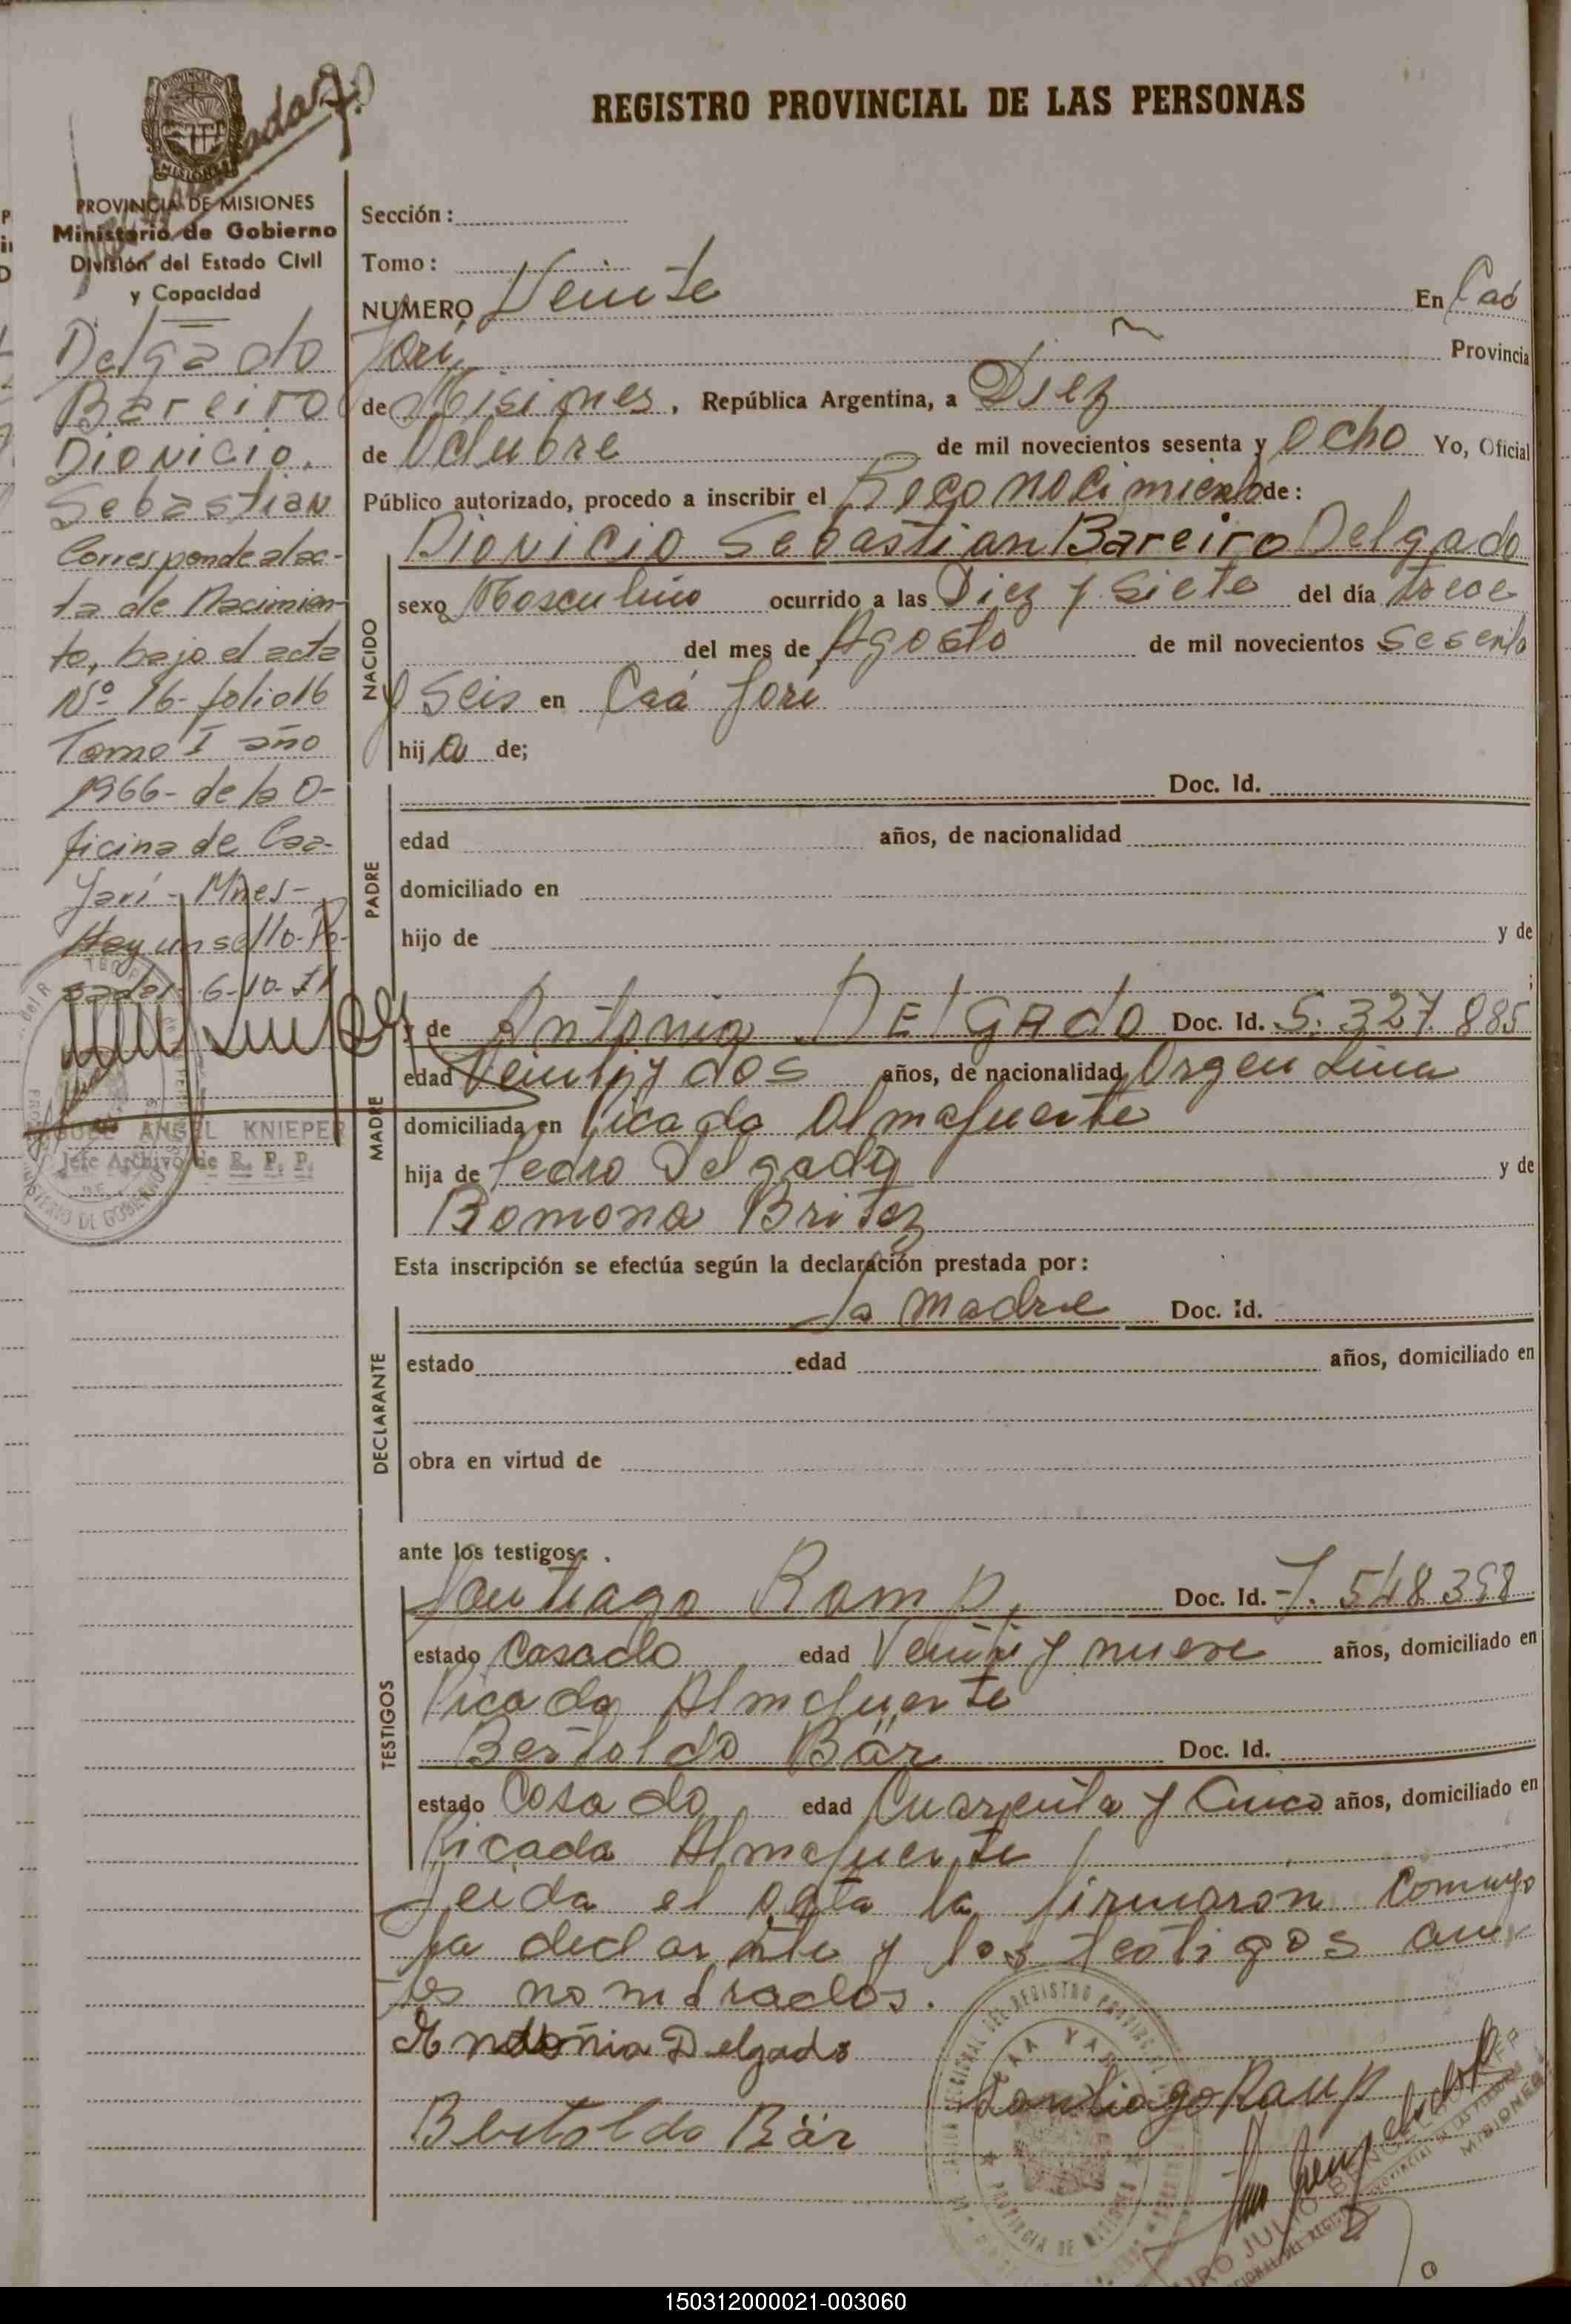 REGISTRO PROVINCIAL DE LAS PERSONAS
PROVINCIA DE MISIONES
Ministerio de Gobierno
División del Estado Civil
y Capacidad
Delgado
Bareiro
Dionicio.
Sebastian
Corresponde al ac-
ta de Nacimien-
to, bajo el acta
Nº 16- folio 16
Tomo I año
1966- de la O-
ficina de Caa-
Yarí - Mnes-
Hay un sello- Po-
sadas- 6-10-71
MIGUEL ANGEL KNIEPER
Jefe Archivo de R. P. P.
Sección:
Tomo:
NUMERO Veinte En Caá
Yarí Provincia
de Misiones, República Argentina, a Diez
de Octubre de mil novecientos sesenta y Ocho Yo, Oficial
Público autorizado, procedo a inscribir el Reconocimiento de:
Dionicio Sebastian Bareiro Delgado
NACIDO
sexo Masculino ocurrido a las Diez y Siete del día trece
del mes de Agosto de mil novecientos Sesenta
y Seis en Caá Yarí
hij o de;
PADRE
Doc. Id.
edad años, de nacionalidad
domiciliado en
hijo de y de
;
MADRE
y de Antonia DElGAdo Doc. Id. 5.327.885
edad Veinti y dos años, de nacionalidad Argentina
domiciliada en Picada Almafuerte
hija de Pedro Delgado y de
Ramona Britez
Esta inscripción se efectúa según la declaración prestada por:
DECLARANTE
La Madre Doc. Id.
estado edad años, domiciliado en
obra en virtud de
ante los testigos:
TESTIGOS
Santiago Ramp, Doc. Id. 7.548.398
estado Casado edad Veinti y nueve años, domiciliado en
Picada Almafuerte
Bertoldo Bär Doc. Id.
estado Casado edad Cuarenta y Cinco años, domiciliado en
Picada Almafuerte
Leida el acta la firmaron Conmigo
la declarante y los testigos an
tes nombrados.
Antonia Delgado
Santiago Ramp
Bertoldo Bär
CAA YARI
PROVINCIA DE MISIONES
MISIONES
150312000021-003060